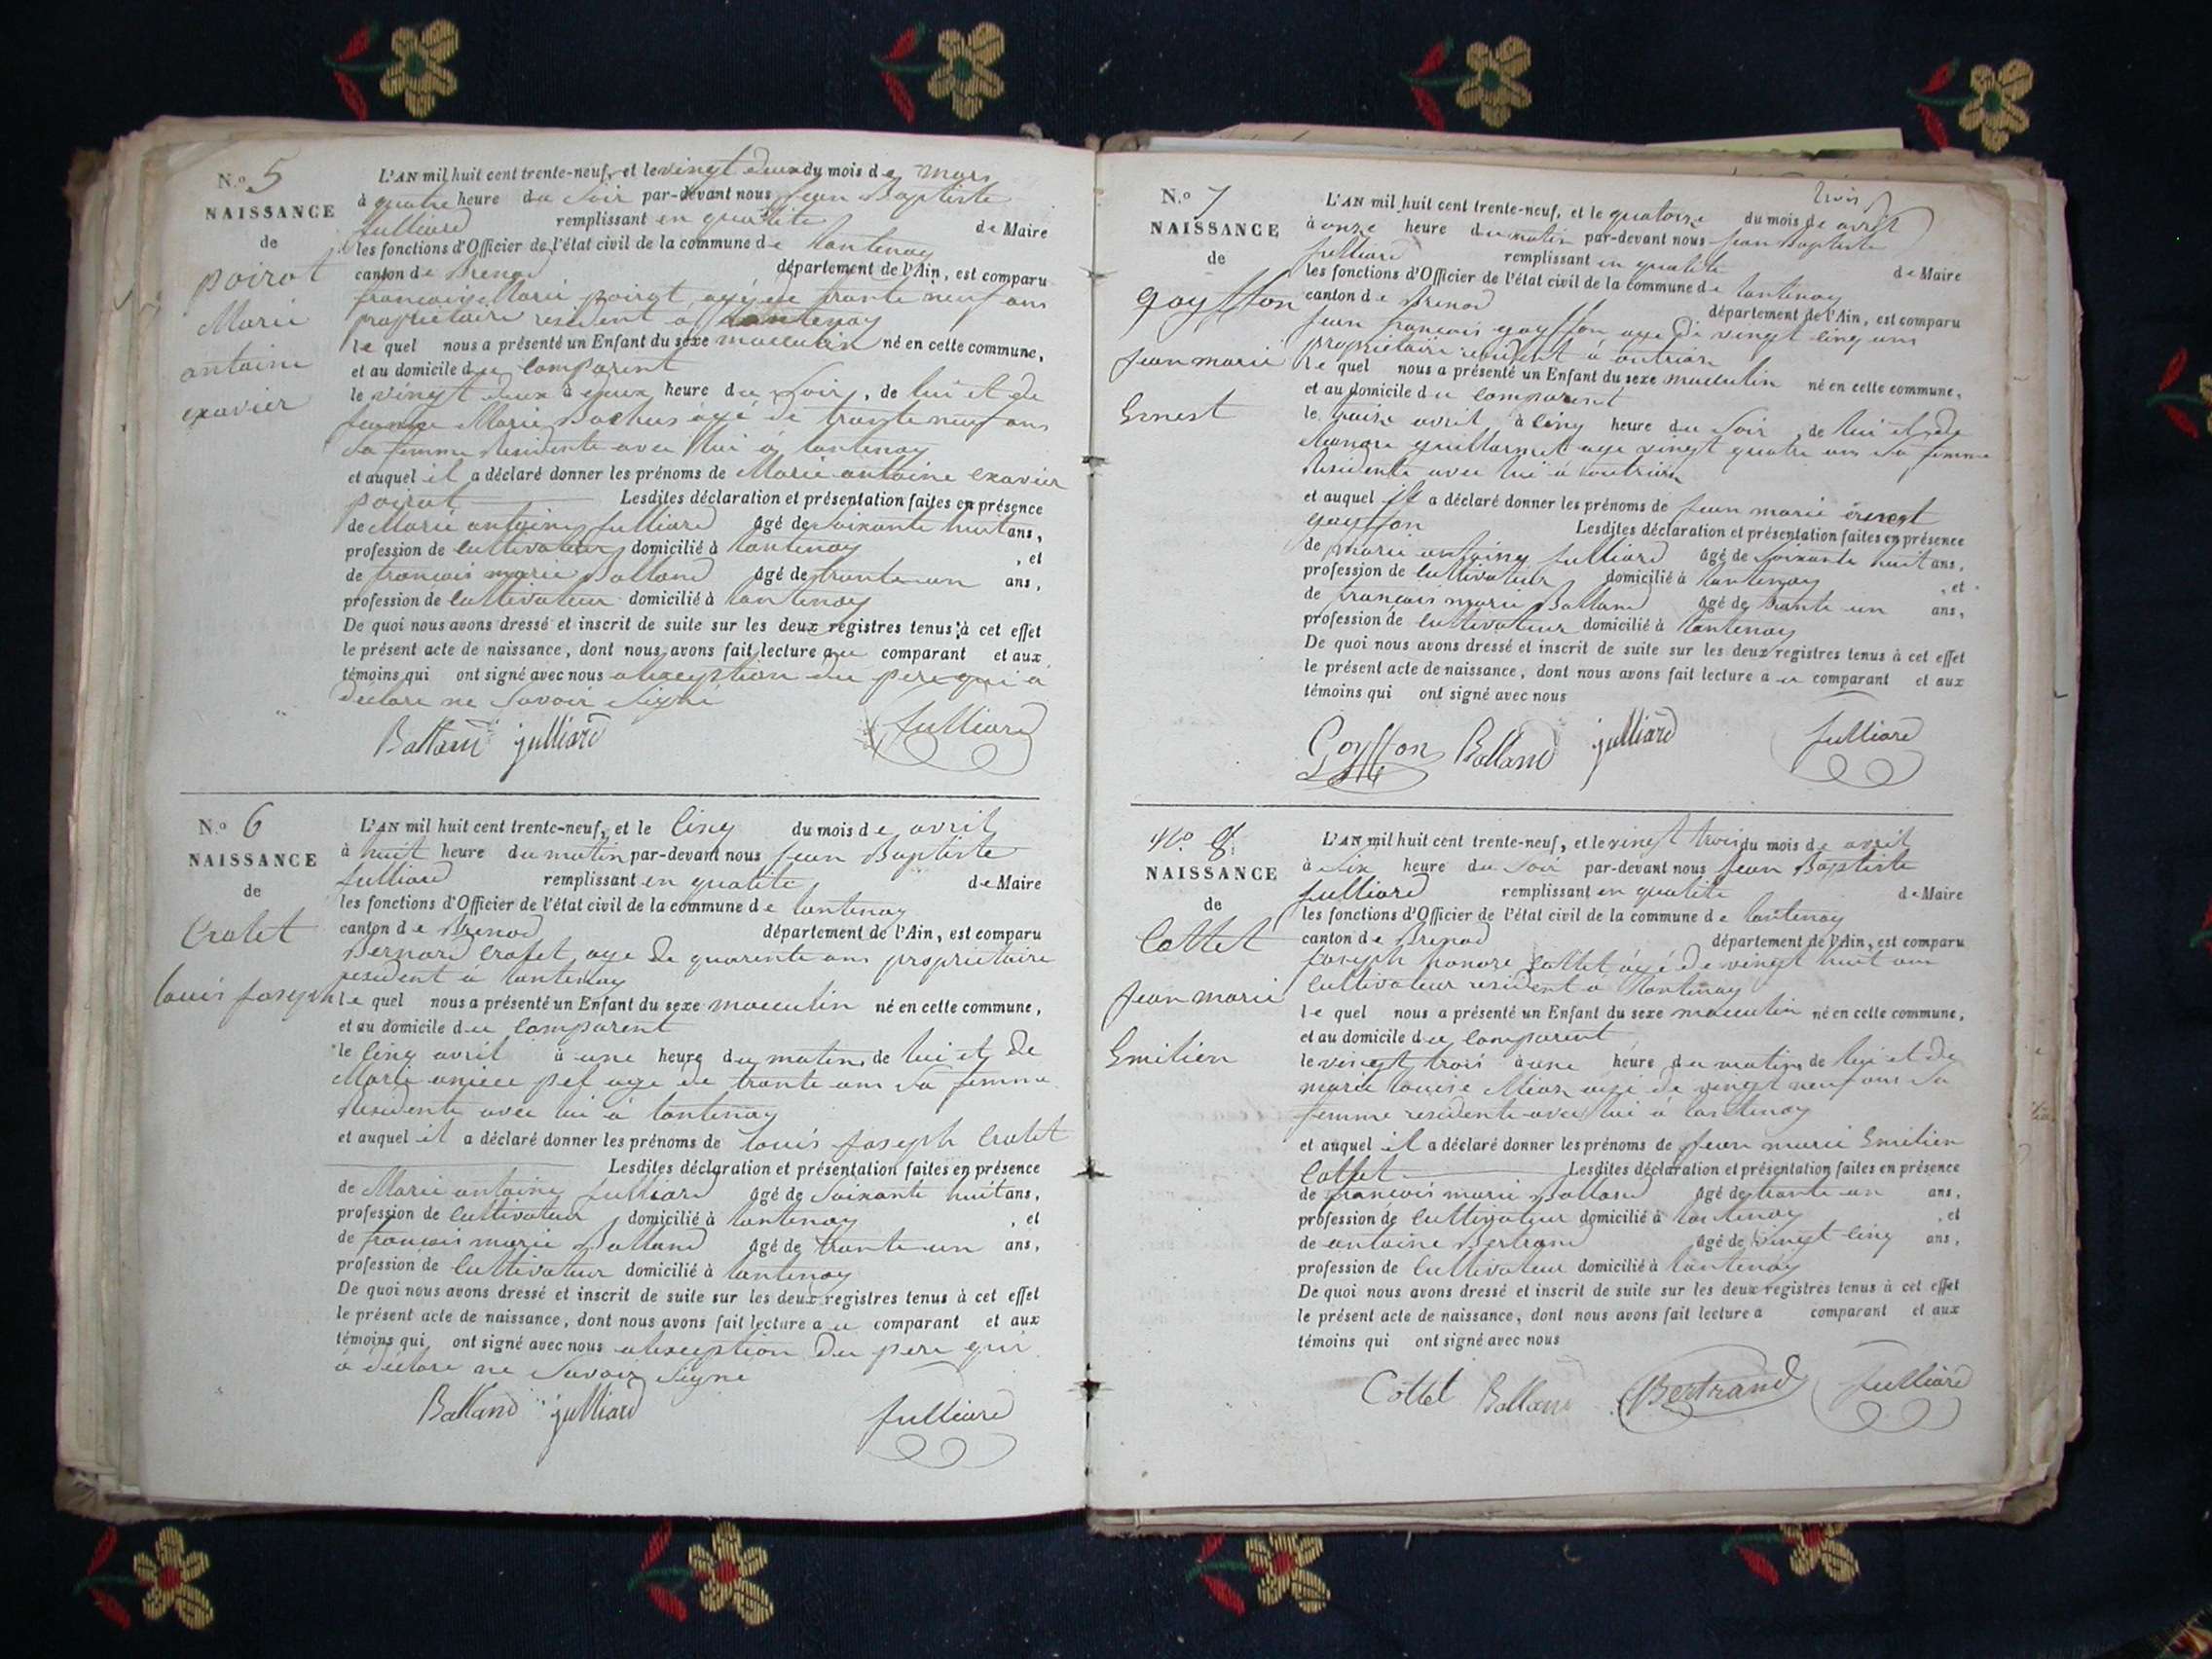 N.o 5
NAISSANCE
de
poirot
Marie
antoine
exavier
L'AN mil huit cent trente-neuf, et le vingt deux du mois de mars
à quatre heure du soir par-devant nous jean Baptiste
julliard remplissant en qualite de Maire
les fonctions d'Officier de l'état civil de la commune de lantenay
canton de Brenod département de l'Ain, est comparu
francois Marie poirot agé de trante neuf ans
proprietaire resident a lantenay
le quel nous a présenté un Enfant du sexe masculin né en cette commune,
et au domicile du comparent
le vingt deux à deux heure du soir, de lui et de
Marie Bachus agé de trante neuf ans
sa femme residente avec lui à lantenay
et auquel il a déclaré donner les prénoms de Marie antoine exavier
poirot Lesdites déclaration et présentation faites en présence
de Marie antoine julliard âgé de soixante huit ans,
profession de cultivateur domicilié à lantenay , et
de francois marie Balland âgé de trante un ans,
profession de cultivateur domicilié à lantenay
De quoi nous avons dressé et inscrit de suite sur les deux registres tenus à cet effet
le présent acte de naissance, dont nous avons fait lecture au comparant et aux
témoins qui ont signé avec nous alexception du pere qui a
declare ne savoir signé
Balland julliard julliard
N.o 6
NAISSANCE
de
Crolet
louis joseph
L'AN mil huit cent trente-neuf, et le cinq du mois de avril
à huit heure du matin par-devant nous jean Baptiste
julliard remplissant en qualite de Maire
les fonctions d'Officier de l'état civil de la commune de lantenay
canton de Brenod département de l'Ain, est comparu
Bernard crolet age de quarente ans proprietaire
resident à lantenay
le quel nous a présenté un Enfant du sexe masculin né en cette commune,
et au domicile du comparent
le cinq avril à une heure du matin de lui et de
Marie age de trante ans sa femme
residente avec lui à lantenay
et auquel il a déclaré donner les prénoms de louis joseph Crolet
Lesdites déclaration et présentation faites en présence
de Marie antoine julliard âgé de soixante huit ans,
profession de cultivateur domicilié à lantenay , et
de francois marie Balland âgé de trante un ans,
profession de cultivateur domicilié à lantenay
De quoi nous avons dressé et inscrit de suite sur les deux registres tenus à cet effet
le présent acte de naissance, dont nous avons fait lecture au comparant et aux
témoins qui ont signé avec nous alexception du pere qui
a déclare ne savoir signé
Balland julliard julliard
N.o 7
NAISSANCE
de
goyffon
jean marie
Ernest
trois
L'AN mil huit cent trente-neuf, et le quatorze du mois de avril
à onze heure du matin par-devant nous jean Baptiste
julliard remplissant en qualite de Maire
les fonctions d'Officier de l'état civil de la commune de lantenay
canton de Brenod département de l'Ain, est comparu
jean francois goyffon age de vingt cinq ans
proprietaire resident à outriaz
le quel nous a présenté un Enfant du sexe masculin né en cette commune,
et au domicile du comparent
le treize avril à cinq heure du soir, de lui et de
guillermet age vingt quatre ans sa femme
residente avec lui à outriaz
et auquel il a déclaré donner les prénoms de jean marie ernest
goyffon Lesdites déclaration et présentation faites en présence
de marie antoine julliard âgé de soixante huit ans,
profession de cultivateur domicilié à lantenay , et
de francois marie Balland âgé de trante un ans,
profession de cultivateur domicilié à lantenay
De quoi nous avons dressé et inscrit de suite sur les deux registres tenus à cet effet
le présent acte de naissance, dont nous avons fait lecture au comparant et aux
témoins qui ont signé avec nous
Goyffon Balland julliard julliard
N.o 8
NAISSANCE
de
Cottet
jean marie
Emilien
L'AN mil huit cent trente-neuf, et le vingt trois du mois de avril
à six heure du soir par-devant nous jean Baptiste
julliard remplissant en qualite de Maire
les fonctions d'Officier de l'état civil de la commune de lantenay
canton de Brenod département de l'Ain, est comparu
joseph honore cottet agé de vingt huit ans
cultivateur resident à lantenay
le quel nous a présenté un Enfant du sexe masculin né en cette commune,
et au domicile du comparent
le vingt trois à une heure du matin de lui et de
marie louise agé de vingt neuf ans sa
femme residente avec lui à lantenay
et auquel il a déclaré donner les prénoms de jean marie Emilien
Cottet Lesdites déclaration et présentation faites en présence
de francois marie Balland âgé de trante un ans,
profession de cultivateur domicilié à lantenay , et
de antoine Bertrand âgé de vingt cinq ans,
profession de cultivateur domicilié à lantenay
De quoi nous avons dressé et inscrit de suite sur les deux registres tenus à cet effet
le présent acte de naissance, dont nous avons fait lecture a comparant et aux
témoins qui ont signé avec nous
Cottet Balland Bertrand julliard